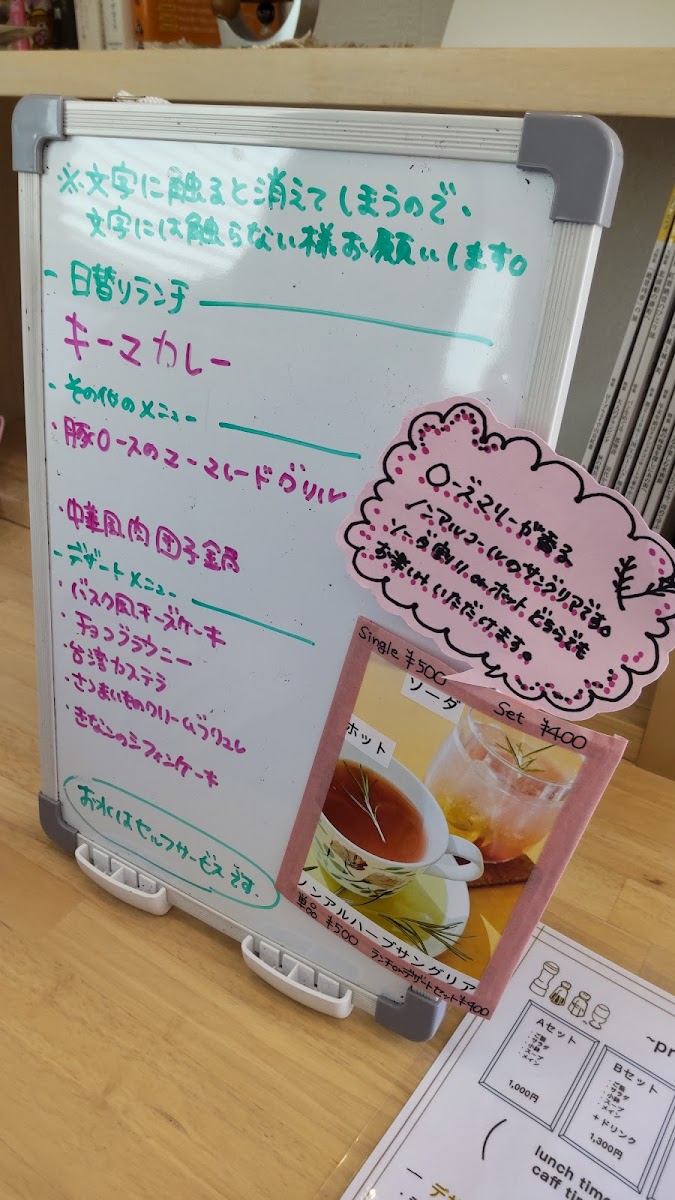 ※文字に触ると消えてしまうので、
文字には触らない様お願いします。
- 日替りランチ
キーマカレー
- その他のメニュー
・豚ロースのマーマレードグリル
・中華風肉団子鍋
- デザートメニュー
・バスク風チーズケーキ
・チョコブラウニー
・台湾カステラ
・さつまいものクリームブリュレ
・きなこのシフォンケーキ
お水はセルフサービスです。
ローズマリーが香る
ノンアルコールのサングリアです。
ソーダ割り orホット どちらでも
お楽しみいただけます。
Single ¥500
Set ¥400
ソーダ
ホット
ノンアルハーブサングリア
単品 ¥500 ランチorデザートセット¥400
~pr
Aセット
・ご飯
・サラダ
・小鉢
・スープ
・メイン
1,000円
Bセット
・ご飯
・サラダ
・小鉢
・スープ
・メイン
+ドリンク
1,300円
lunch tim
caff tim